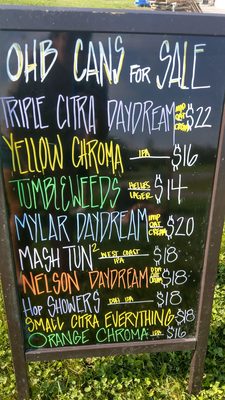 OHB CANS FOR SALE
TRIPLE CITRA DAYDREAM IMP OAT CREAM $22
YELLOW CHROMA IPA $16
TUMBLEWEEDS HELLES LAGER $14
MYLAR DAYDREAM IMP OAT CREAM $20
MASH TUN² WEST COAST IPA $18
NELSON DAYDREAM $18
HOP SHOWERS IPA $18
SMALL CITRA EVERYTHING $18
ORANGE CHROMA IPA $16